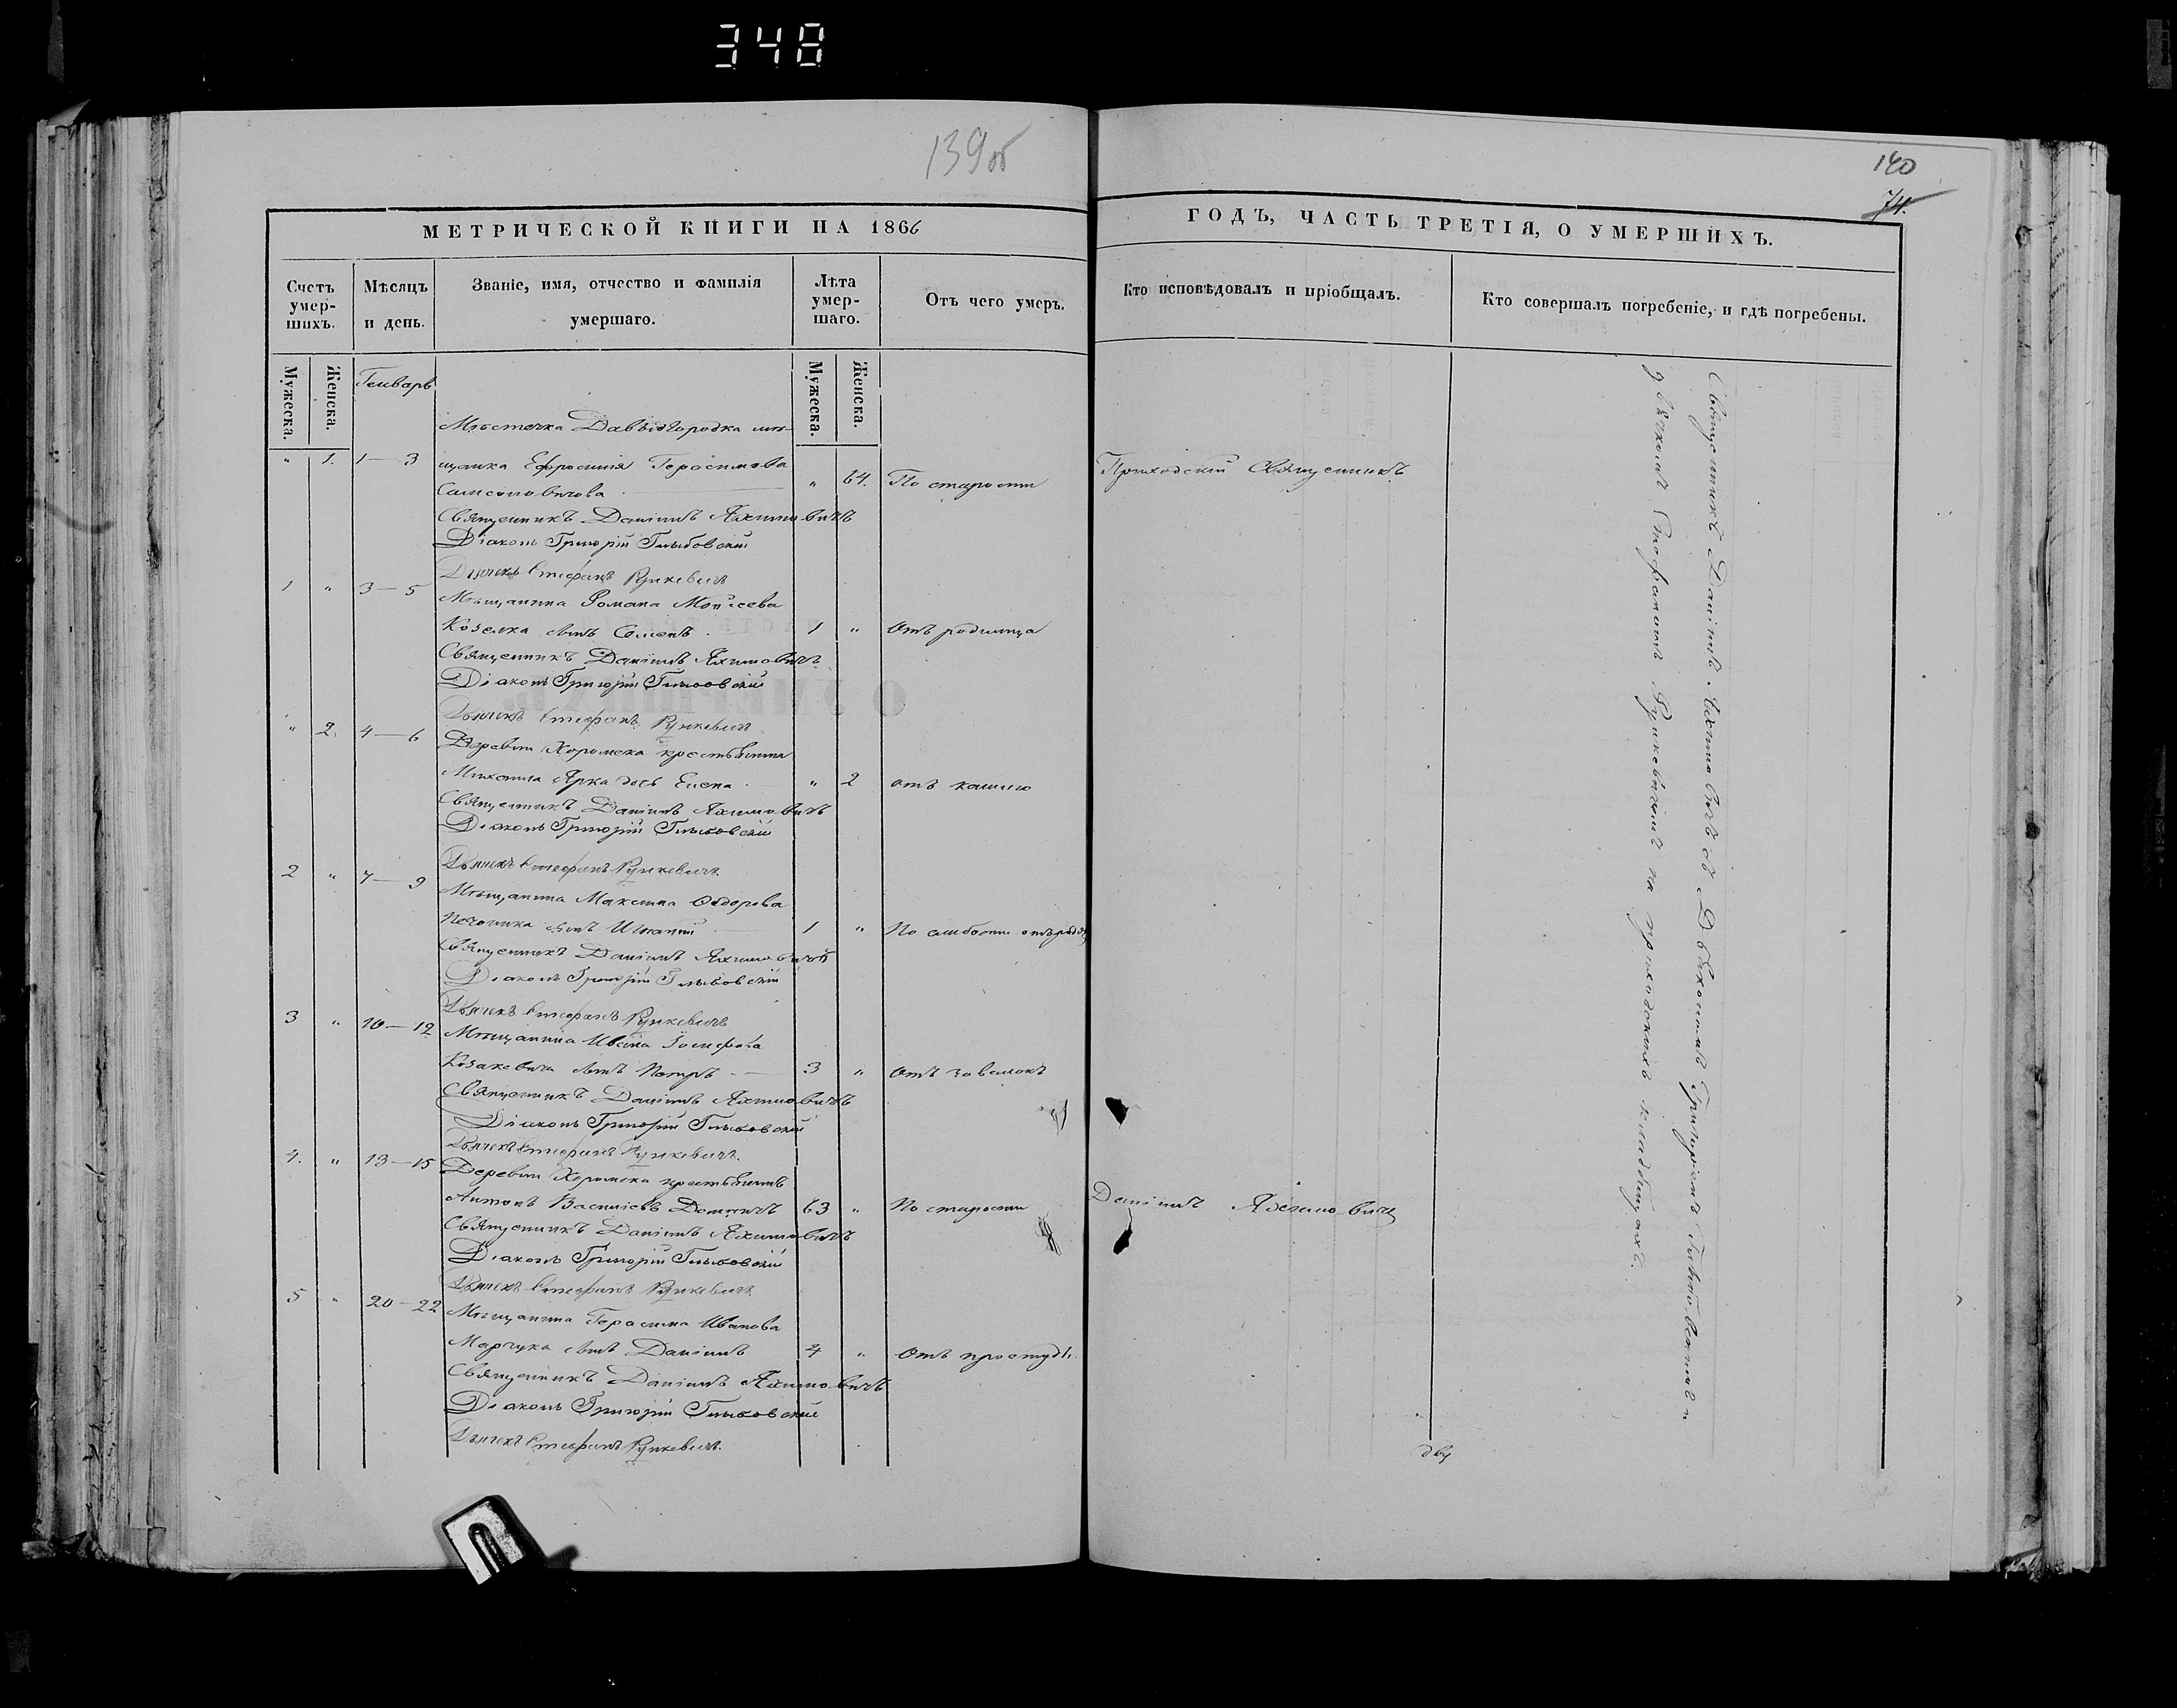 348
139об
140
74.
МЕТРИЧЕСКОЙ КНИГИ НА 1866
ГОДЪ, ЧАСТЬ ТРЕТІЯ, О УМЕРШИХЪ.
Счетъ умер-шихъ.
Мѣсяцъ и день.
Званіе, имя, отчество и фамилія умершаго.
Лѣта умер-шаго.
Отъ чего умеръ.
Кто исповѣдовалъ и пріобщалъ.
Кто совершалъ погребеніе, и гдѣ погребены.
Мужеска.
Женска.
Генварь
Мужеска.
Женска.
Мѣстечка Давыдгородка мѣ-
" 1. 1—3 щанка Ефросинія Герасимова
Самсоновичова " 64. По старости Приходскій Священникъ
Священникъ Даніилъ Яхимовичъ
Діаконъ Григорій Глыбовскій
Дьячекъ Стефанъ Рункевичъ
1 " 3—5 Мѣщанина Романа Моисеева
Козелка сынъ Семенъ 1 " Отъ родимца
Священникъ Даніилъ Яхимовичъ
Діаконъ Григорій Глыбовскій
Дьячекъ Стефанъ Рункевичъ
" 2. 4—6 Деревни Хоромска крестьянина
Михаила Ярка дочь Елена " 2 отъ кашлю
Священникъ Даніилъ Яхимовичъ
Діаконъ Григорій Глыбовскій
Дьячекъ Стефанъ Рункевичъ
2 " 7—9 Мѣщанина Максима Ѳедорова
сынъ Игнатій 1 " По слабости
Священникъ Даніилъ Яхимовичъ
Діаконъ Григорій Глыбовскій
Дьячекъ Стефанъ Рункевичъ
3 " 10—12 Мѣщанина Ивана Іосифова
Козакевича сынъ Петръ 3 " Отъ
Священникъ Даніилъ Яхимовичъ
Діаконъ Григорій Глыбовскій
Дьячекъ Стефанъ Рункевичъ.
4. " 13—15 Деревни Хоромска крестьянинъ
Антонъ Василіевъ 63 " По старости Даніилъ Яхимовичъ
Священникъ Даніилъ Яхимовичъ
Діаконъ Григорій Глыбовскій
Дьячекъ Стефанъ Рункевичъ
5 " 20—22 Мѣщанина Герасима Иванова
Марчука сынъ Даніилъ 4 " Отъ простуды.
Священникъ Даніилъ Яхимовичъ
Діаконъ Григорій Глыбовскій
Дьячекъ Стефанъ Рункевичъ.
Священникъ Даніилъ Яхимовичъ съ Діакономъ Григоріемъ Глыбовскимъ и
дьячкомъ Стефаномъ Рункевичемъ на приходскихъ кладбищахъ.